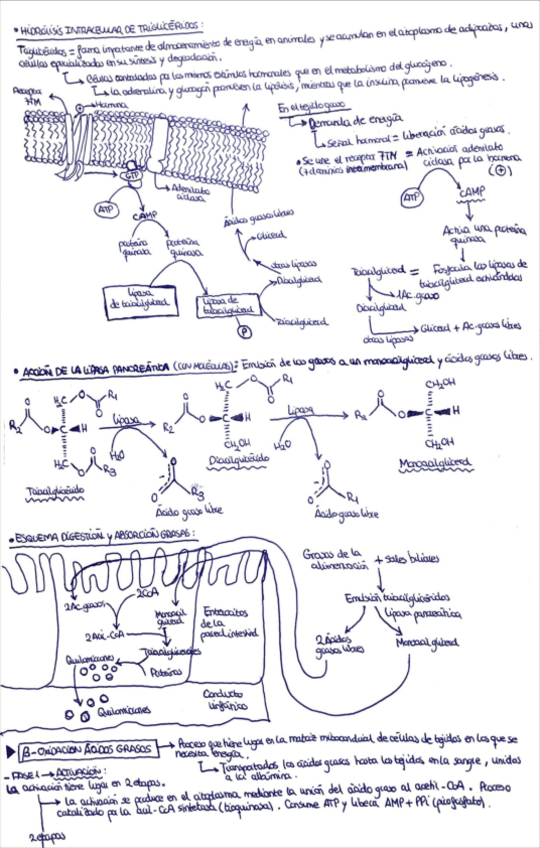 • HIDRÓLISIS INTRACELULAR DE TRIGLICÉRIDOS:
Triglicéridos = forma importante de almacenamiento de energía en animales y se acumulan en el citoplasma de adipocitos, unas
células especializadas en su síntesis y degradación.
Células controladas por los mismos estímulos hormonales que en el metabolismo del glucógeno.
La adrenalina y glucagón promueven la lipólisis, mientras que la insulina promueve la lipogénesis.
Receptor
7TM
Hormona
GTP
Adenilato
ciclasa
ATP
cAMP
proteína
quinasa
proteína
quinasa
lipasa
de triacilglicerol
lipasa de
triacilglicerol
P
Ácidos grasos libres
Glicerol
otras lipasas
Diacilglicerol
Triacilglicerol
En el tejido graso
Demanda de energía
Señal hormonal = liberación ácidos grasos.
• Se une el receptor 7TM = Activación adenilato
(7 dominios intramembrana) ciclasa por la hormona
(+)
ATP
cAMP
Activa una proteína
quinasa
Triacilglicerol = Fosforila las lipasas de
triacilglicerol activándolas
1 Ac. graso
Diacilglicerol
otras lipasas
Glicerol + Ac. grasos libres
• ACCIÓN DE LA LIPASA PANCREÁTICA (CON MOLÉCULAS): Emulsión de las grasas a un monoacilglicerol y ácidos grasos libres.
Lipasa
H₂O
Lipasa
H₂O
Triacilglicérido
Ácido graso libre
Diacilglicérido
Ácido graso libre
Monoacilglicerol
• ESQUEMA DIGESTIÓN y ABSORCIÓN GRASAS:
2Ac. grasos
2CoA
2 Acil-CoA
Monoacil
glicerol
Triacilgliceroles
Proteínas
Quilomicrones
Quilomicrones
Enterocitos
de la
pared intestinal
Conducto
linfático
Grasas de la
alimentación + sales biliares
Emulsión triacilglicéridos
Lipasa pancreática
2 Ácidos
grasos libres
Monoacilglicerol
β-OXIDACIÓN ÁCIDOS GRASOS
Proceso que tiene lugar en la matriz mitocondrial de células de tejidos en los que se
necesita energía.
Transportados los ácidos grasos hasta los tejidos en la sangre, unidos
a la albúmina.
- FASE 1 → ACTIVACIÓN:
La activación tiene lugar en 2 etapas.
La activación se produce en el citoplasma mediante la unión del ácido graso al acetil-CoA. Proceso
catalizado por la acil-CoA sintetasa (tioquinasa). Consume ATP y libera AMP + PPi (pirofosfato).
2 etapas